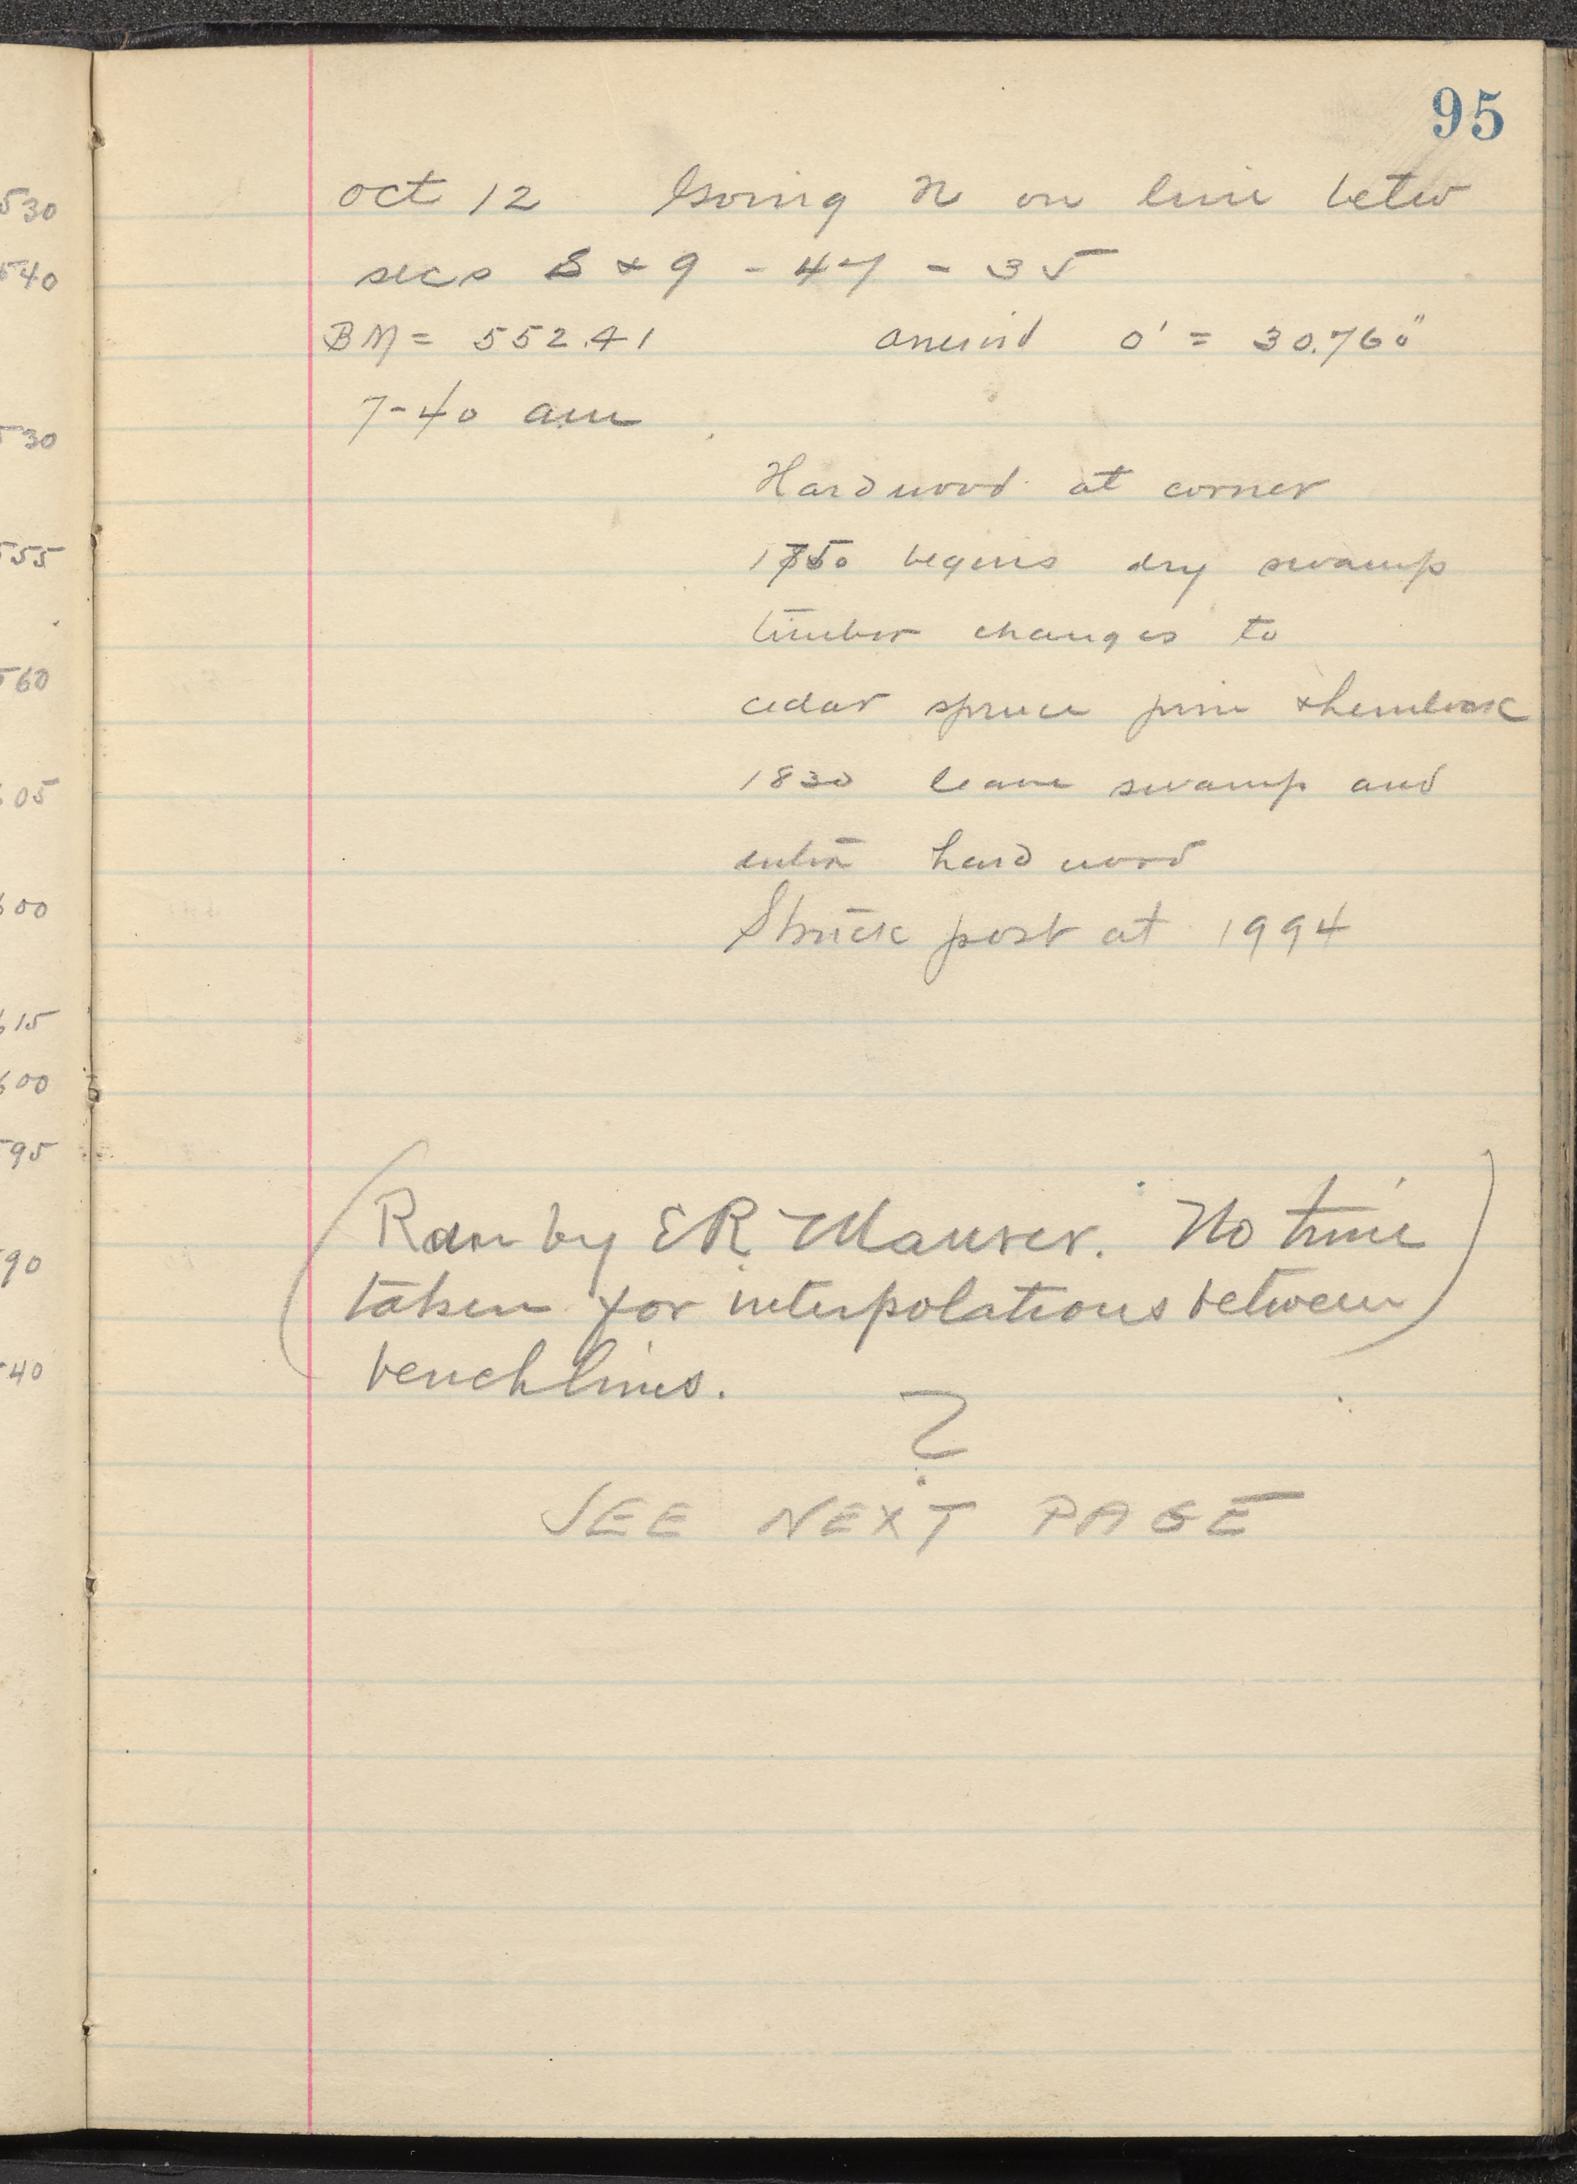 530
540
530
555
560
605
600
615
600
595
590
540
95
Oct 12 Going N on line betw
secs 8 & 9 - 47 - 35
BM = 552.41 aneroid 0' = 30.760"
7-40 am
Hardwood at corner
begins dry swamp
timber changes to
cedar spruce pine & hemlock
1830 leave swamp and
enter hard wood
Struck post at 1994
(Ran by E R Mauser. No time
taken for interpolations between)
benchlines.
?
SEE NEXT PAGE